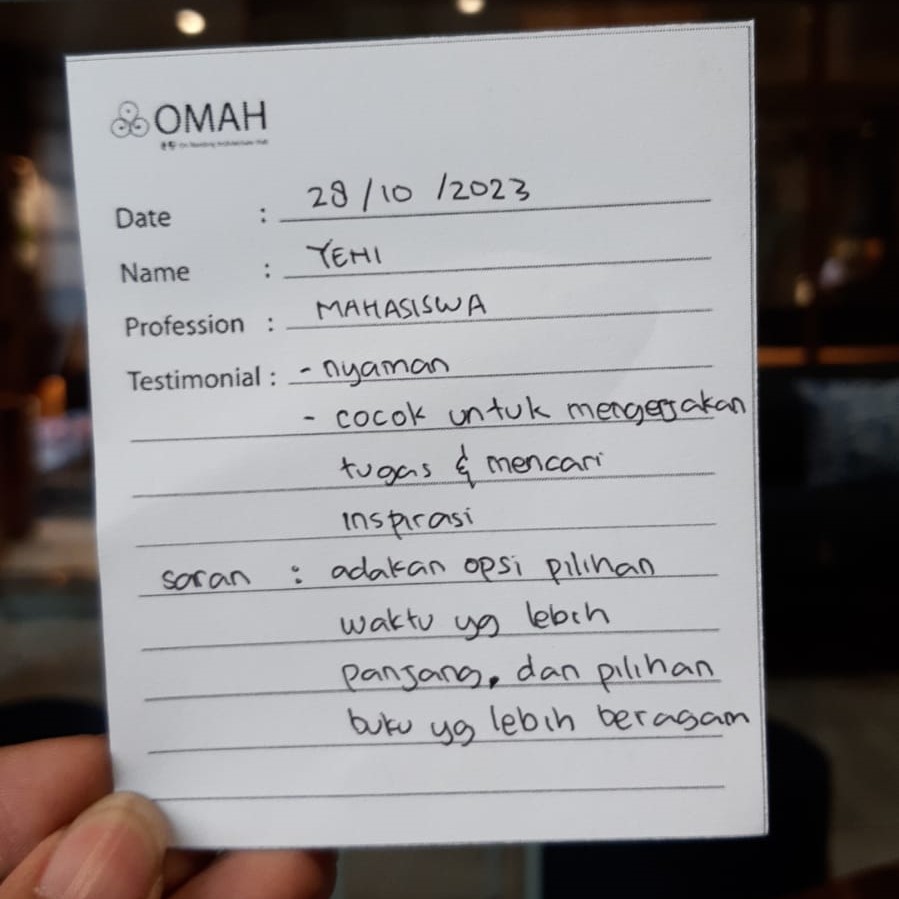 OMAH
Date : 28/10/2023
Name : YEMI
Profession : MAHASISWA
Testimonial : - nyaman
- cocok untuk mengerjakan
tugas & mencari
inspirasi
saran : adakan opsi pilihan
waktu yg lebih
panjang, dan pilihan
buku yg lebih beragam